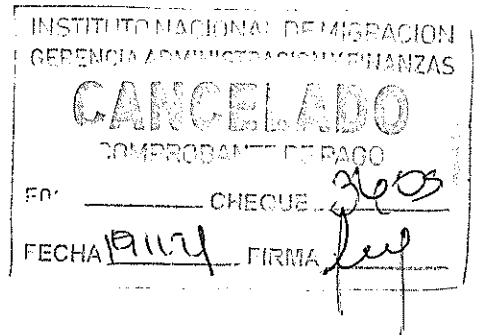 INSTITUTO NACIONAL DE MIGRACION
GERENCIA ADMINISTRACION Y FINANZAS
CANCELADO
COMPROBANTE DE PAGO
CHEQUE 3605
FECHA FIRMA